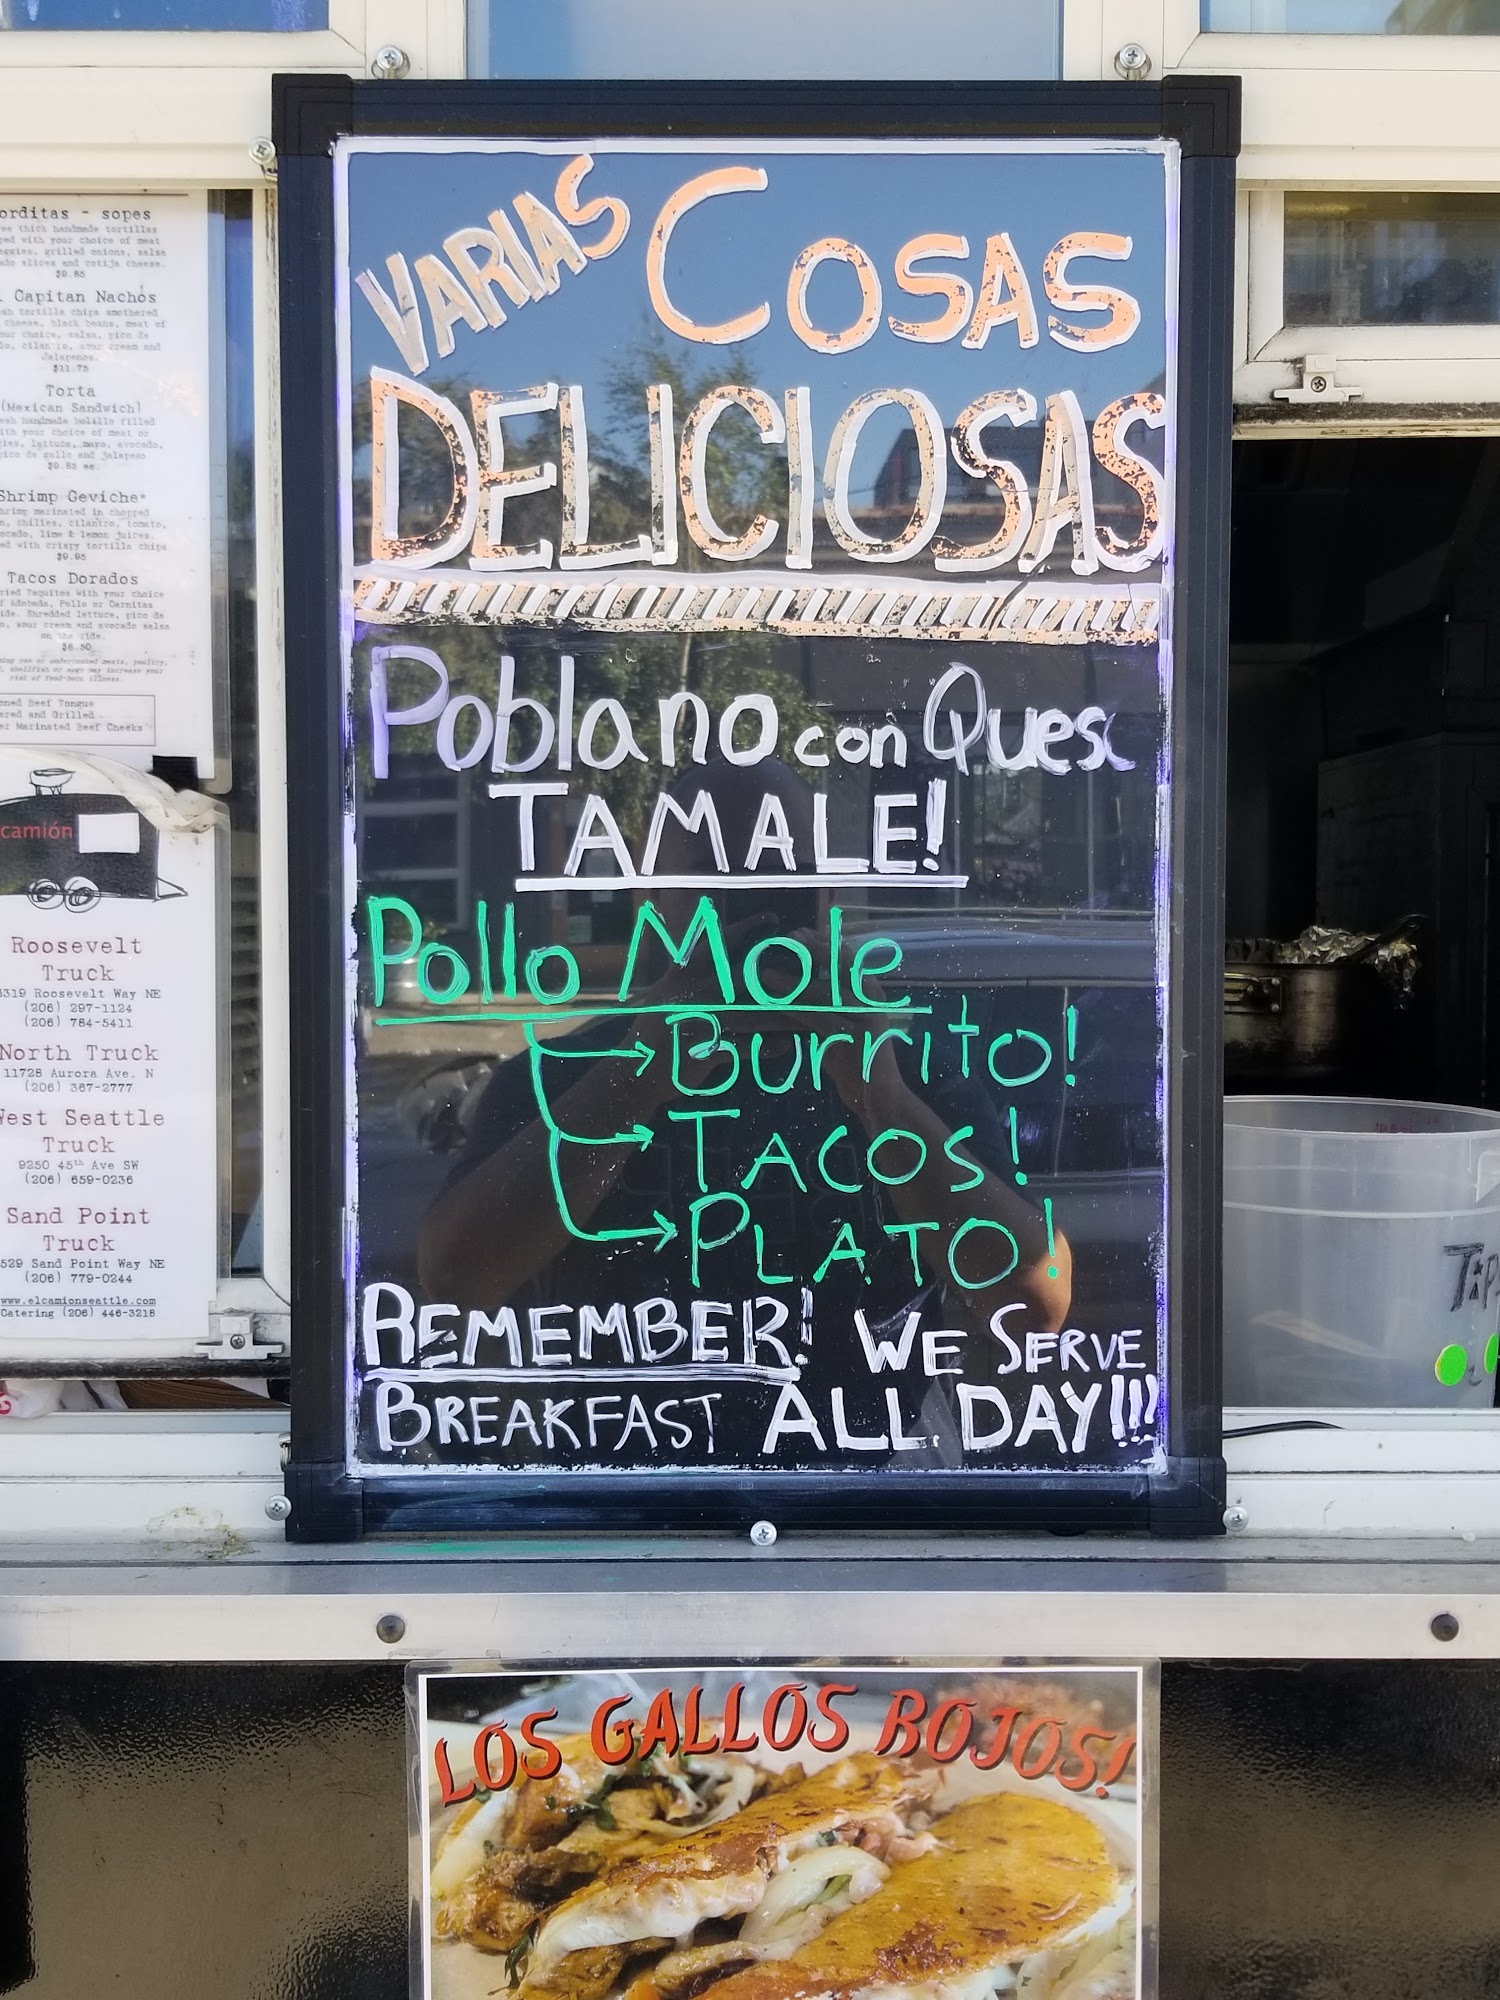 VARIAS COSAS
DELICIOSAS
Poblano con Quesc
TAMALE!
Pollo Mole
Burrito!
TACOS!
PLATO!
REMEMBER! WE SERVE
BREAKFAST ALL DAY!!!
orditas - sopes
thick handmade tortillas
with your choice of meat
grilled onions, salsa
slices and cotija cheese.
$9.85
Capitan Nachos
tortilla chips smothered
cheese, black beans, meat of
choice, salsa, pico de
cilantro, sour cream and
Jalapenos
$11.75
Torta
(Mexican Sandwich)
handmade bolillo filled
with your choice of meat or
lettuce, mayo, avocado,
pico de gallo and jalapeno
$9.85 ea.
Shrimp Ceviche*
shrimp marinated in chopped
chilies, cilantro, tomato,
lime & lemon juices.
with crispy tortilla chips
$9.95
Tacos Dorados
Taquitos with your choice
Adobada, Pollo or Carnitas
Shredded lettuce, pico de
sour cream and avocado salsa
on the side.
$8.50
raw or undercooked meats, poultry,
shellfish or eggs may increase your
risk of food-born illness.
Beef Tongue
and Grilled
Marinated Beef Cheeks
camión
Roosevelt
Truck
6319 Roosevelt Way NE
(206) 297-1124
(206) 784-5411
North Truck
11728 Aurora Ave. N
(206) 367-2777
West Seattle
Truck
9250 45th Ave SW
(206) 659-0236
Sand Point
Truck
529 Sand Point Way NE
(206) 779-0244
www.elcamionseattle.com
Catering (206) 446-3218
LOS GALLOS ROJOS!